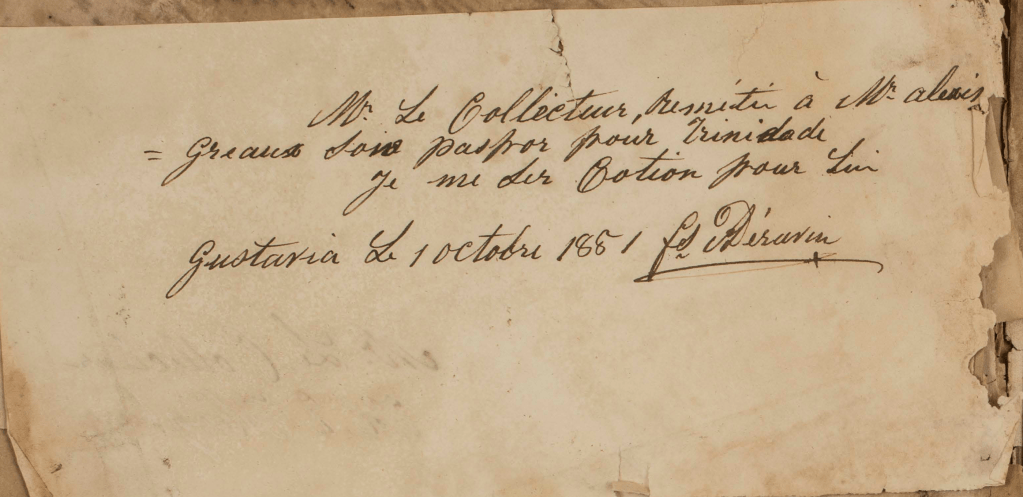 Mr Le Collecteur, Remétir à Mr alexis
= Greaux Son paspor pour Trinidade
Je me Ser Cotion pour Lui
Gustavia Le 1 octobre 1881 fs Déravin